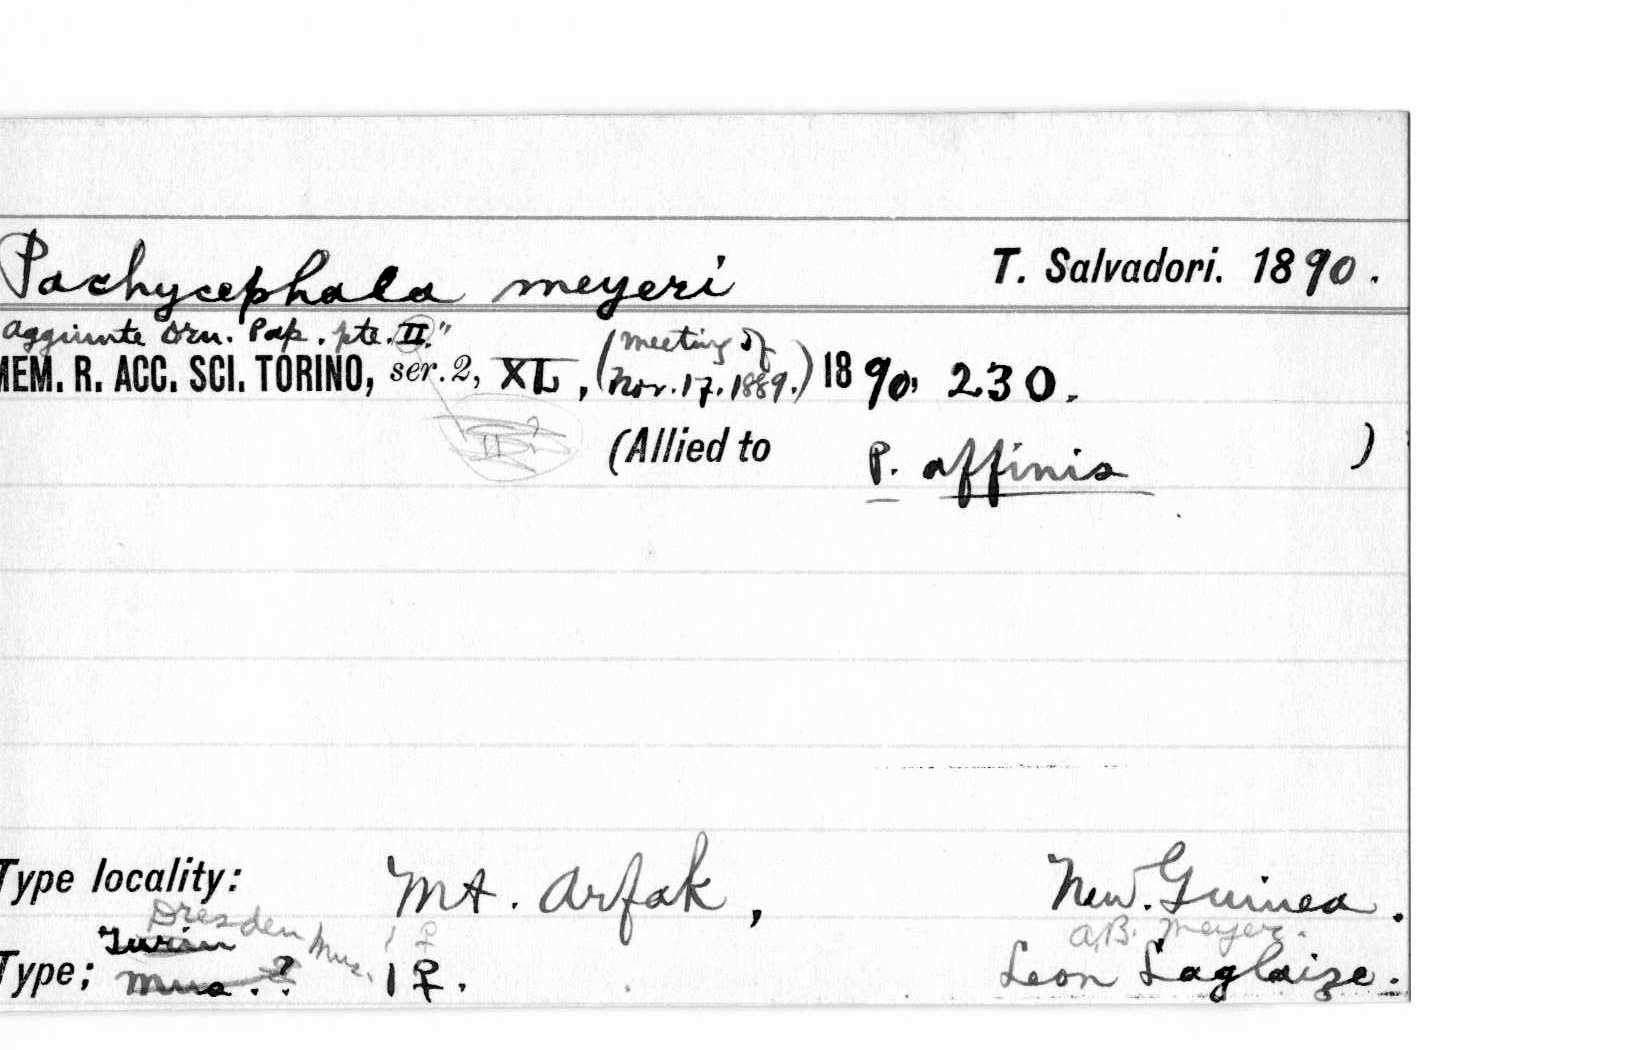 Pachycephala meyeri T. Salvadori. 1890.
Aggiunte Orn. Pap. pte. II."
MEM. R. ACC. SCI. TORINO, ser. 2, XL, (meeting of Nov. 17. 1889.) 1890, 230.
(Allied to P. affinis )
Type locality: Mt. Arfak, New Guinea.
Dresden Mus. 1 ♀ A.B. Meyer.
Type; Turin Mus. ? 1 ♀. Leon Laglaize.